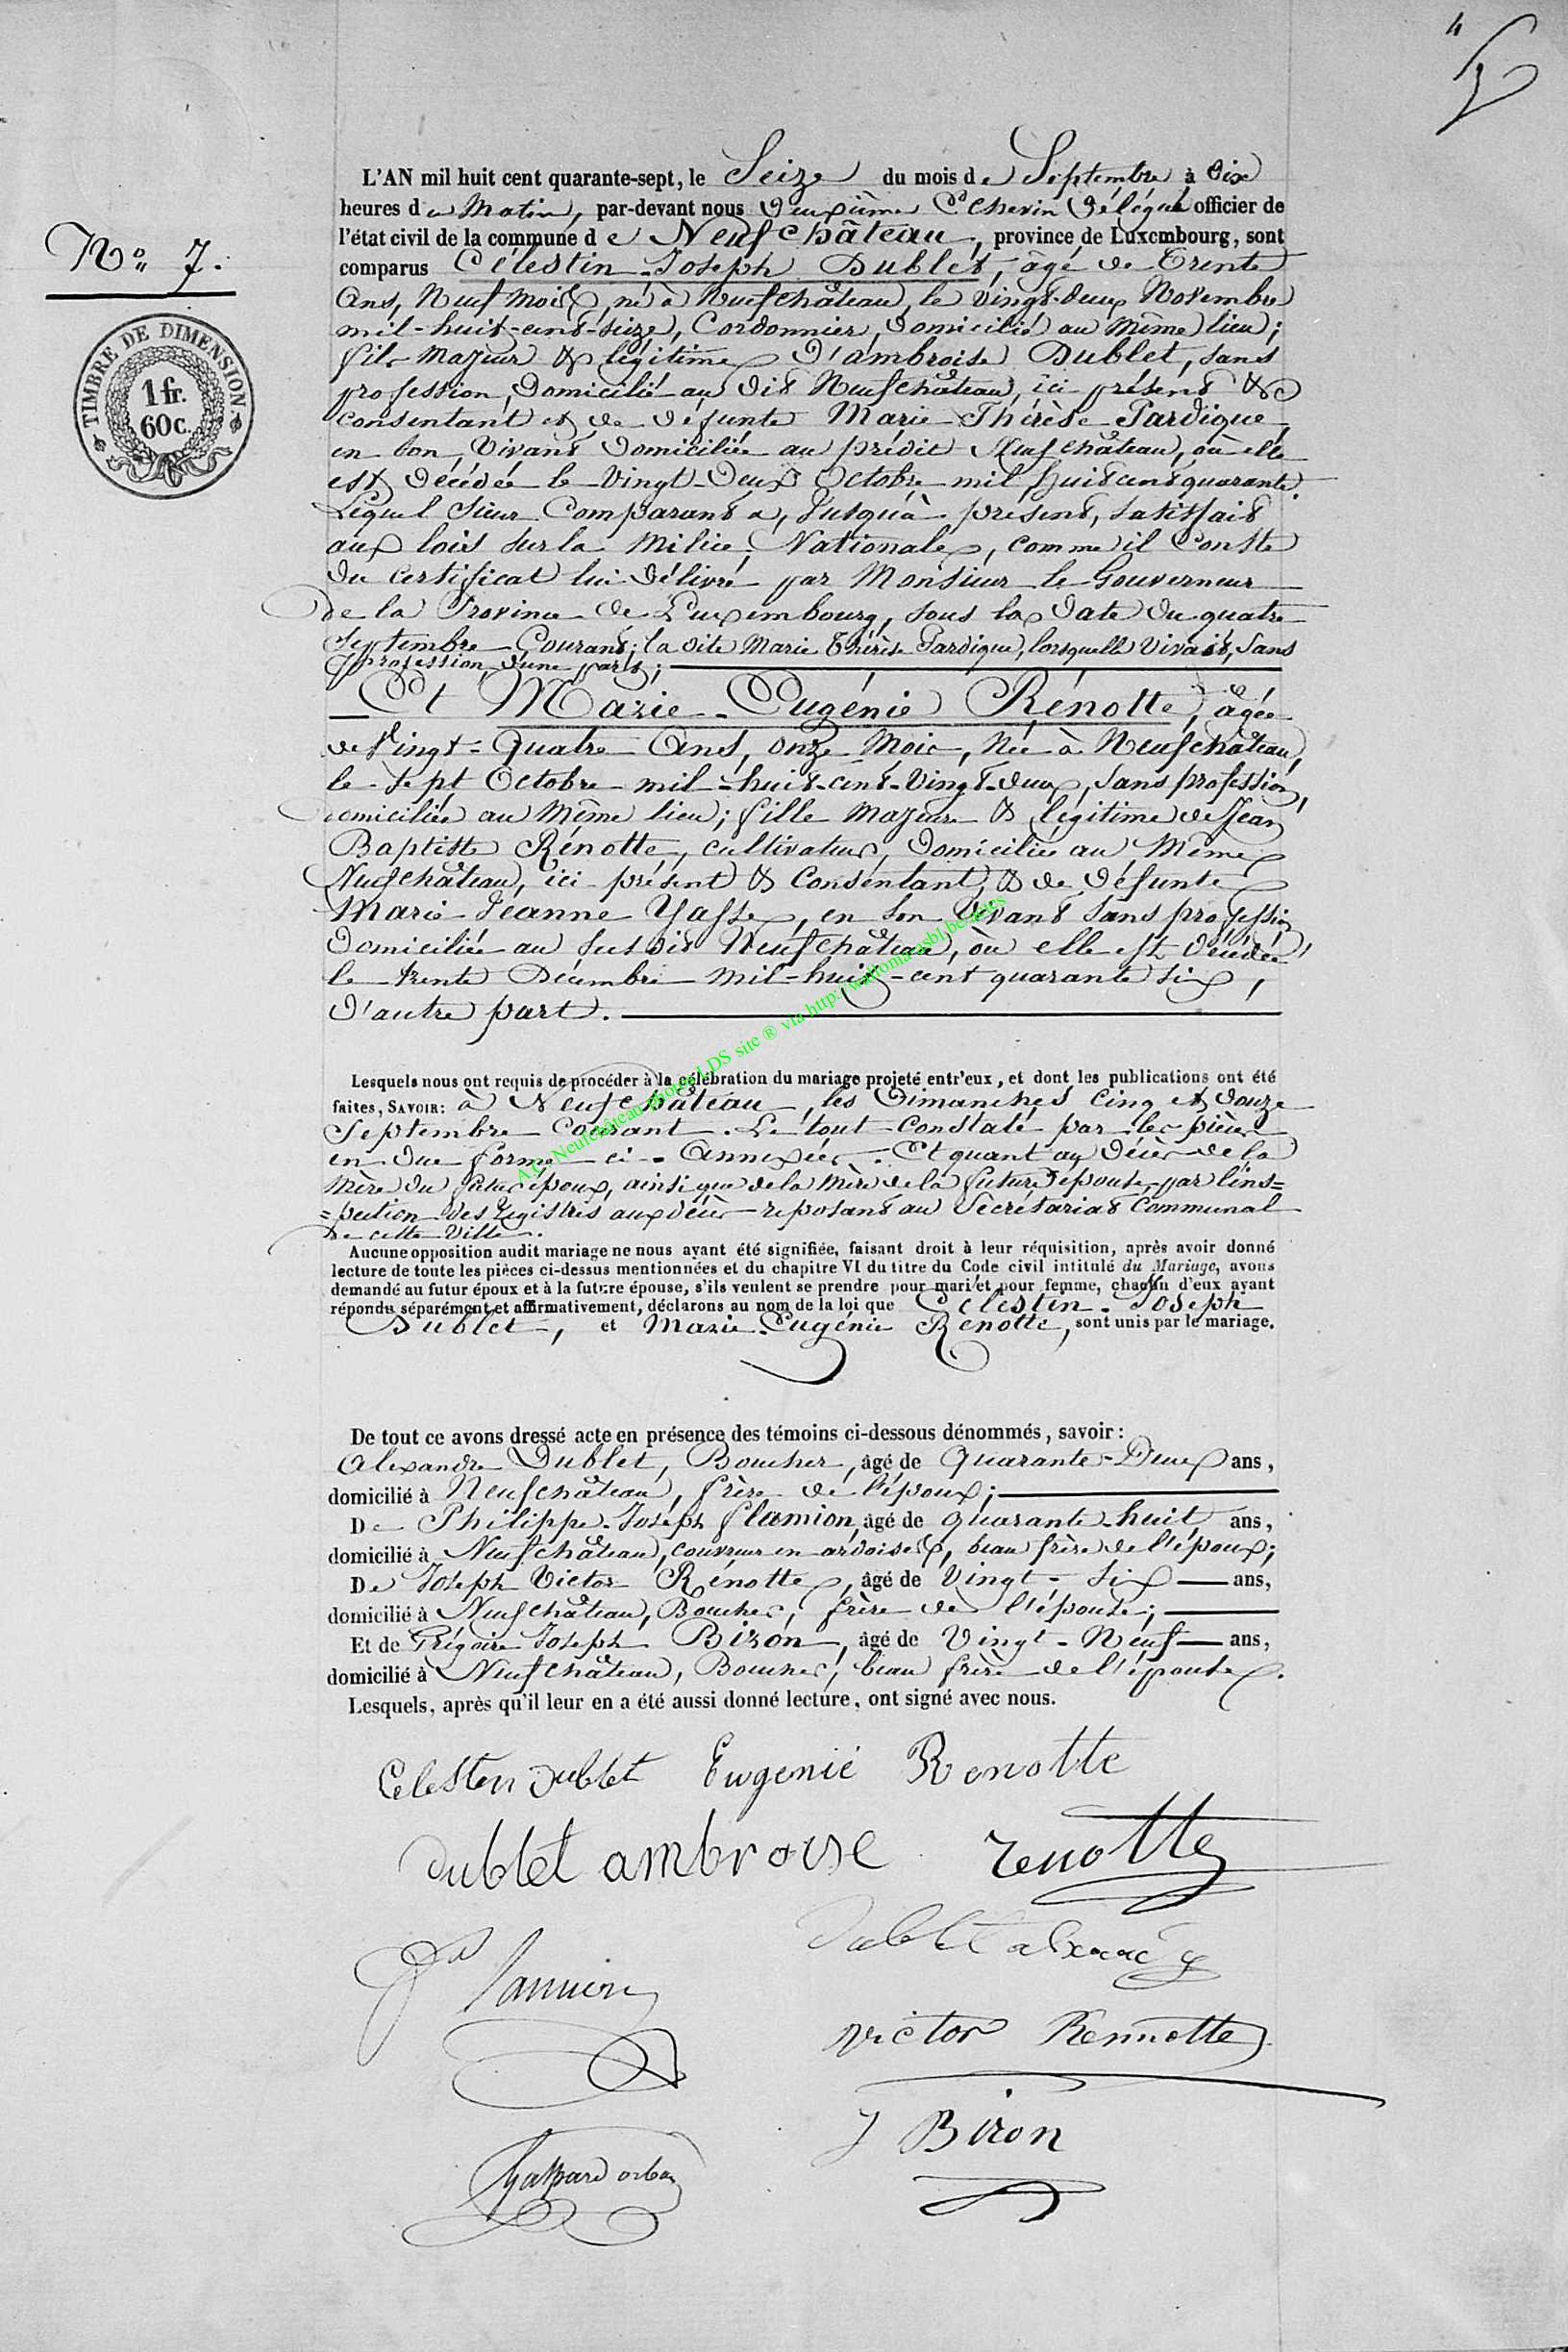 4
L'AN mil huit cent quarante-sept, le Seize du mois de Septembre à Dix
heures du Matin, par-devant nous Deuxième Echevin Délégué officier de
l'état civil de la commune de Neufchâteau, province de Luxembourg, sont
N° 7.
comparus Célestin-Joseph Dublet, âgé de Trente
Ans, Neuf mois, né à Neufchâteau, le vingt-deux Novembre
mil-huit-cent-seize, Cordonnier, Domicilié au même lieu;
TIMBRE DE DIMENSION
1 fr.
60 c.
fils majeur & légitime D'ambroise Dublet, sans
profession, Domicilié au dit Neufchâteau, ici présent &
consentant et de défunte Marie-Thérèse Pardique,
en son vivant Domiciliée au prédit Neufchâteau, où elle
est décédée le Vingt-Deux Octobre mil huit cent quarante.
Lequel Sieur Comparant a, Jusqu'à présent, satisfait
aux lois sur la Milice Nationale, comme il Conste
du Certificat lui délivré par Monsieur le Gouverneur
de la Province de Luxembourg, sous la Date du quatre
Septembre Courant; la dite Marie Thérèse Pardique, lorsquelle Vivait, sans
profession, d'une part;
Et Marie-Eugénie Rénotte, âgée
de Vingt-Quatre Ans, onze Mois, Née à Neufchâteau,
le Sept Octobre mil-huit-cent-Vingt-deux, sans profession,
domiciliée au Même lieu; fille Majeure & légitime de Jean
Baptiste Rénotte, cultivateur, Domicilié au Même
Neufchâteau, ici présent & Consentant, & de Défunte
Marie-Jeanne Yasse, en son Vivant sans profession
Domiciliée au susdit Neufchâteau, où elle est décédée
le trente Décembre mil-huit-cent quarante six,
D'autre part.
A.C. Neufchâteau photos LDS site ® via http://wallonia-asbl.be/actes
Lesquels nous ont requis de procéder à la célébration du mariage projeté entr'eux, et dont les publications ont été
faites, SAVOIR: à Neufchâteau, les Dimanches Cinq et Douze
Septembre Courant. Le tout Constaté par les pièces
en due forme ci-Annexées. Et quant au Décès de la
Mère du futur époux, ainsi que de la Mère de la future épouse par l'ins=
=pection des Registres aux décès reposant au Secrétariat Communal
de cette Ville.
Aucune opposition audit mariage ne nous ayant été signifiée, faisant droit à leur réquisition, après avoir donné
lecture de toute les pièces ci-dessus mentionnées et du chapitre VI du titre du Code civil intitulé du Mariage, avons
demandé au futur époux et à la future épouse, s'ils veulent se prendre pour mari et pour femme, chacun d'eux ayant
répondu séparément et affirmativement, déclarons au nom de la loi que Célestin-Joseph
Dublet, et Marie-Eugénie Rénotte, sont unis par le mariage.
De tout ce avons dressé acte en présence des témoins ci-dessous dénommés, savoir:
Alexandre Dublet, Boucher, âgé de Quarante-Deux ans,
domicilié à Neufchâteau, frère de l'époux;
De Philippe-Joseph Flamion, âgé de quarante-huit ans,
domicilié à Neufchâteau, couvreur en ardoises, beau frère de l'époux;
De Joseph Victor Rénotte, âgé de Vingt-Six ans,
domicilié à Neufchâteau, Boucher, frère de l'épouse;
Et de Grégoire Joseph Biron, âgé de Vingt-Neuf ans,
domicilié à Neufchâteau, Boucher, beau frère de l'épouse.
Lesquels, après qu'il leur en a été aussi donné lecture, ont signé avec nous.
Celesten Dublet Eugenie Renotte
dublet ambroise renotte
Dublet
victor Rennotte
J Biron
Gaspard